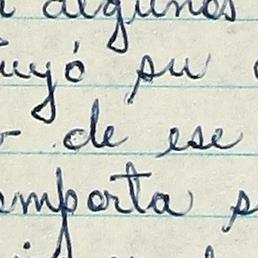 algunos
uyó su
de ese
mporta s